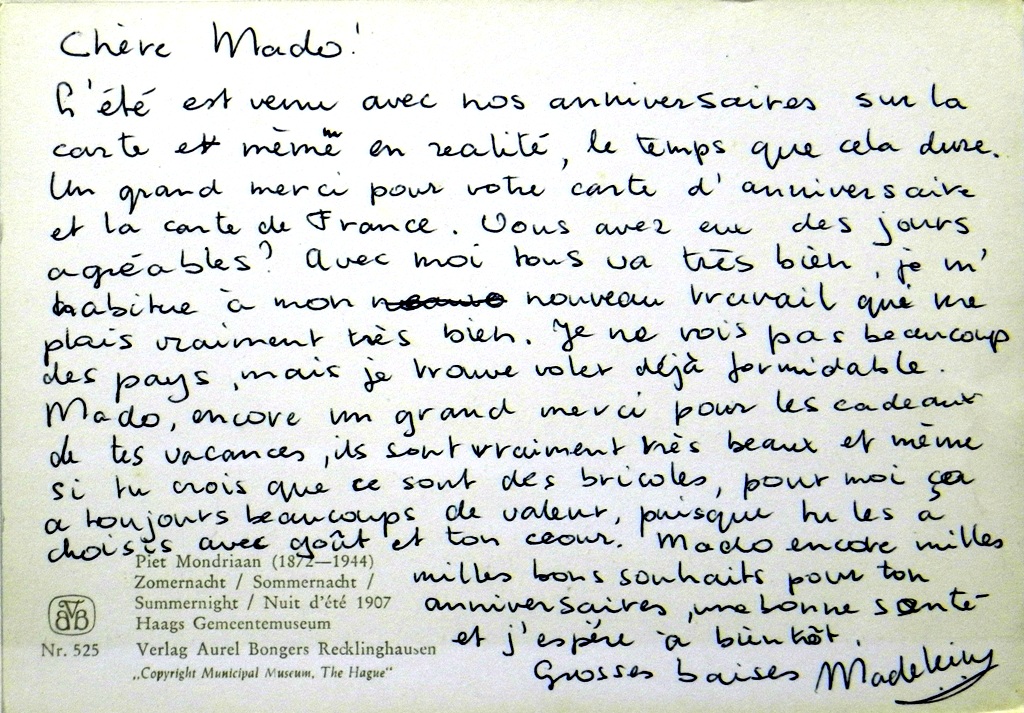 Chère Mado!
L'été est venu avec nos anniversaires sur la
carte et même en realité, le temps que cela dure.
Un grand merci pour votre carte d'anniversaire
et la carte de France. Vous avez eu des jours
agréables? Avec moi tous va très bien, je m'
habitue à mon nouveau travail que me
plais vraiment très bien. Je ne vois pas beaucoup
des pays, mais je trouve voler déjà formidable.
Mado, encore un grand merci pour les cadeaux
de tes vacances, ils sont vraiment très beaux et même
si tu crois que ce sont des bricoles, pour moi ça
a toujours beaucoups de valeur, puisque tu les a
choisis avec goût et ton coeur. Mado encore milles
milles bons souhaits pour ton
anniversaires, une bonne santé
et j'espére à bientôt.
Grosses baises
Piet Mondriaan (1872—1944)
Zomernacht / Sommernacht /
Summernight / Nuit d'été 1907
Haags Gemeentemuseum
Nr. 525 Verlag Aurel Bongers Recklinghausen
„Copyright Municipal Museum, The Hague“